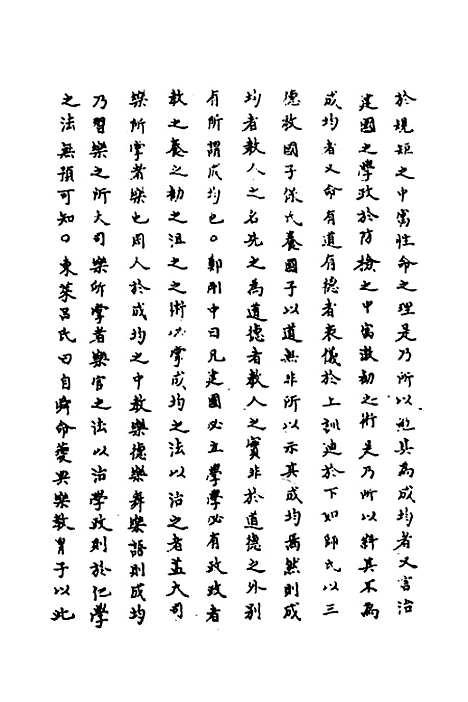 於規矩之中寓性命之理是乃所以興其為成均者又言治
建國之學政於防撿之中寓激勸之術是乃所以糾其不為
成均者又命有道有德者表儀於上訓迪於下如師氏以三
德教國子保氏養國子以道無非所以示其成均焉然則成
均者教人之名先之為道德者教人之實非於道德之外別
有所謂成均也○鄭剛中曰凡建國必立學學必有政政者
教之養之勸之沮之之術必掌成均之法以治之者蓋大司
樂所掌者樂也周人於成均之中教樂德樂舞樂語則成均
乃習樂之所大司樂所掌者樂官之法以治學政則於仁學
之法無預可知○東萊呂氏曰自舜命夔典樂教冑子以此